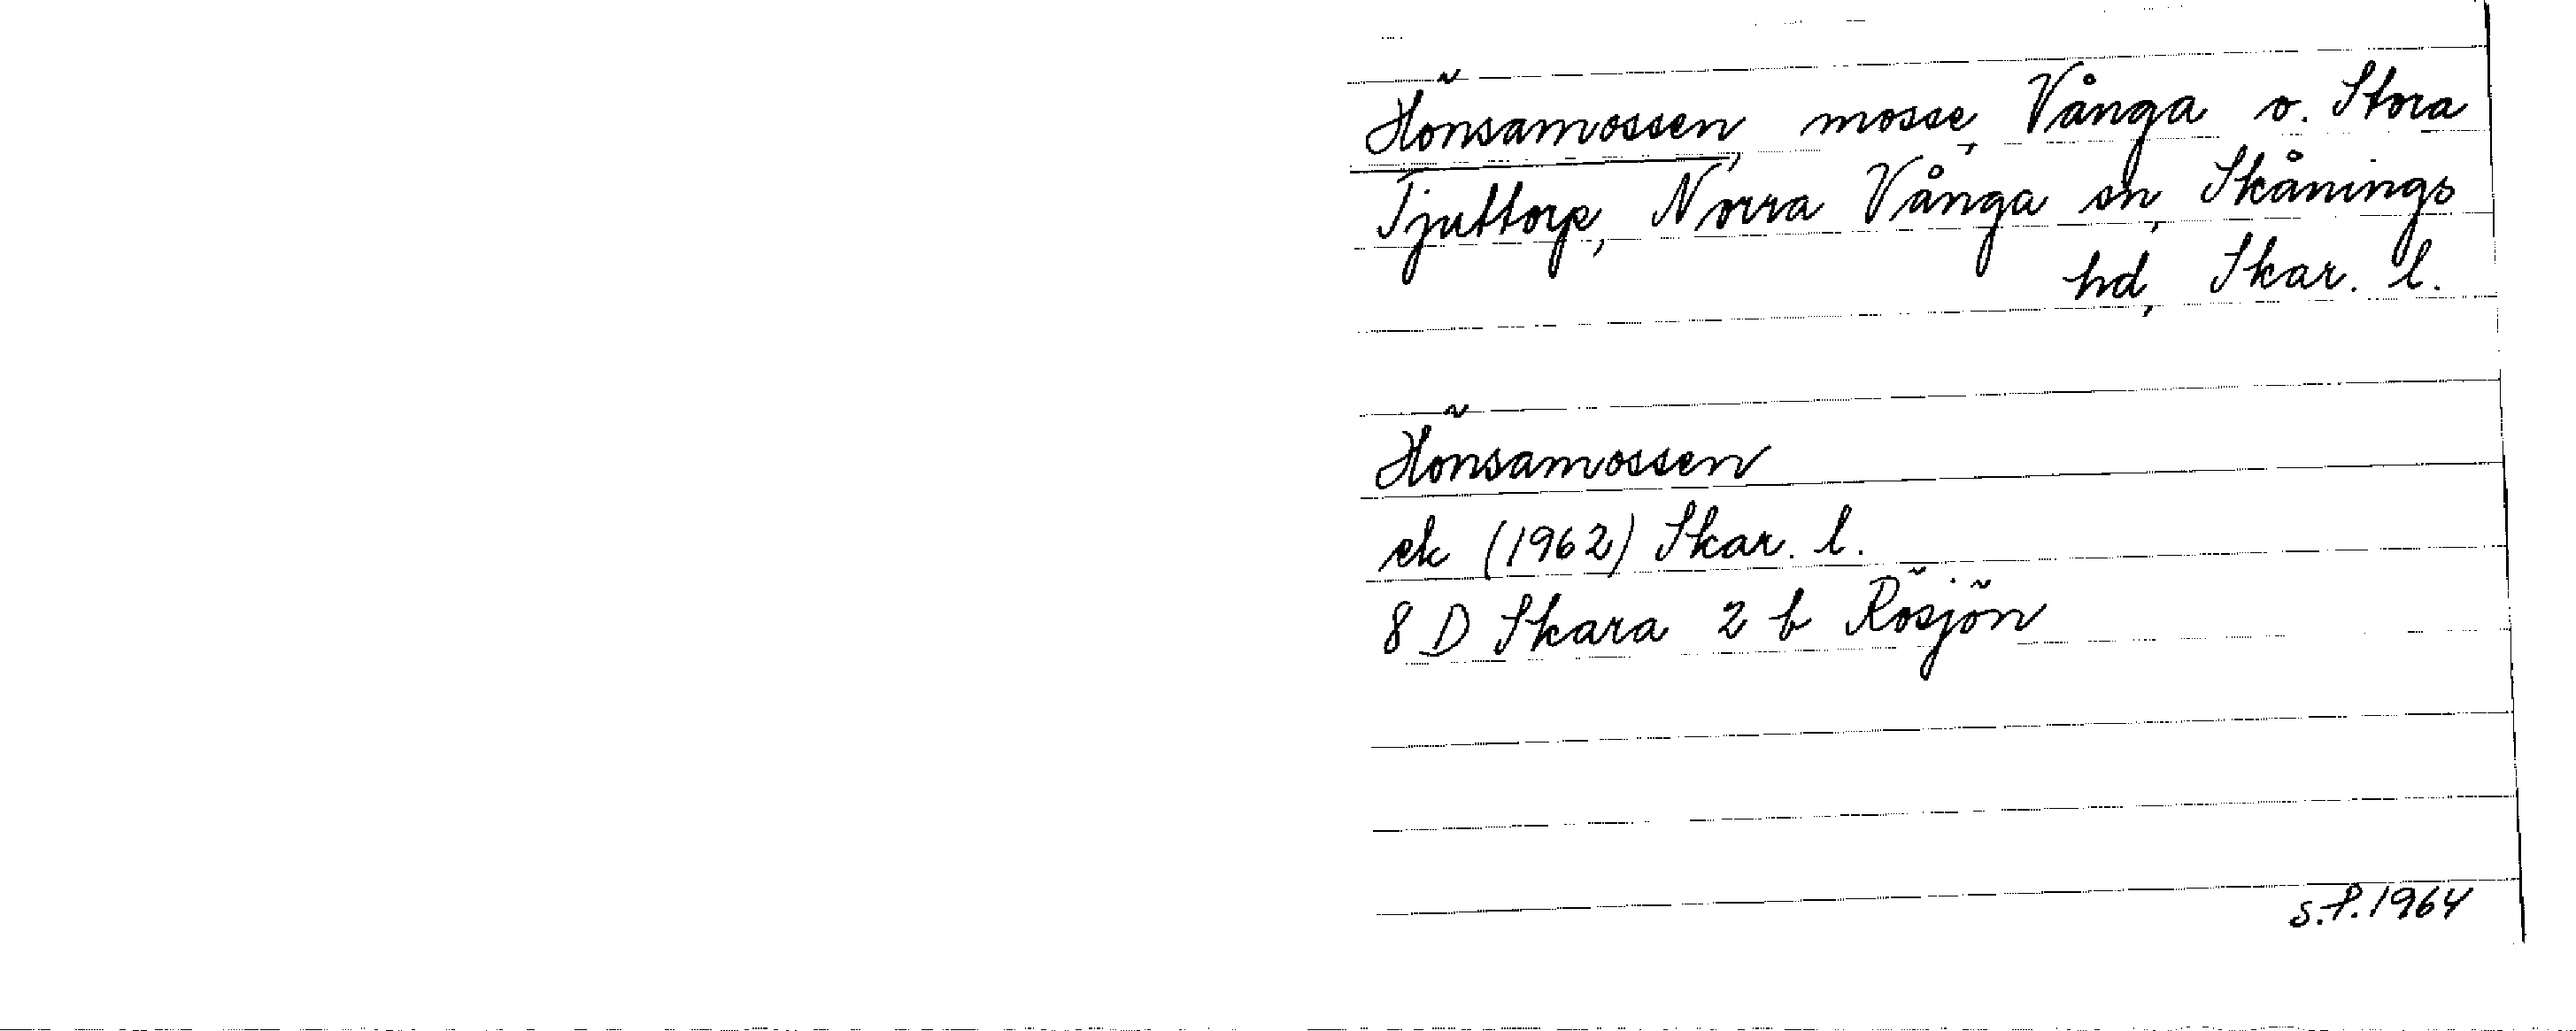 Hönsamossen, mosse, Vånga o. Stora
Tjuttorp, Norra Vånga sn, Skånings
hd, Skar. l.
Hönsamossen
ek (1962) Skar. l.
8 D Skara 2 b Rösjön
S.P. 1964